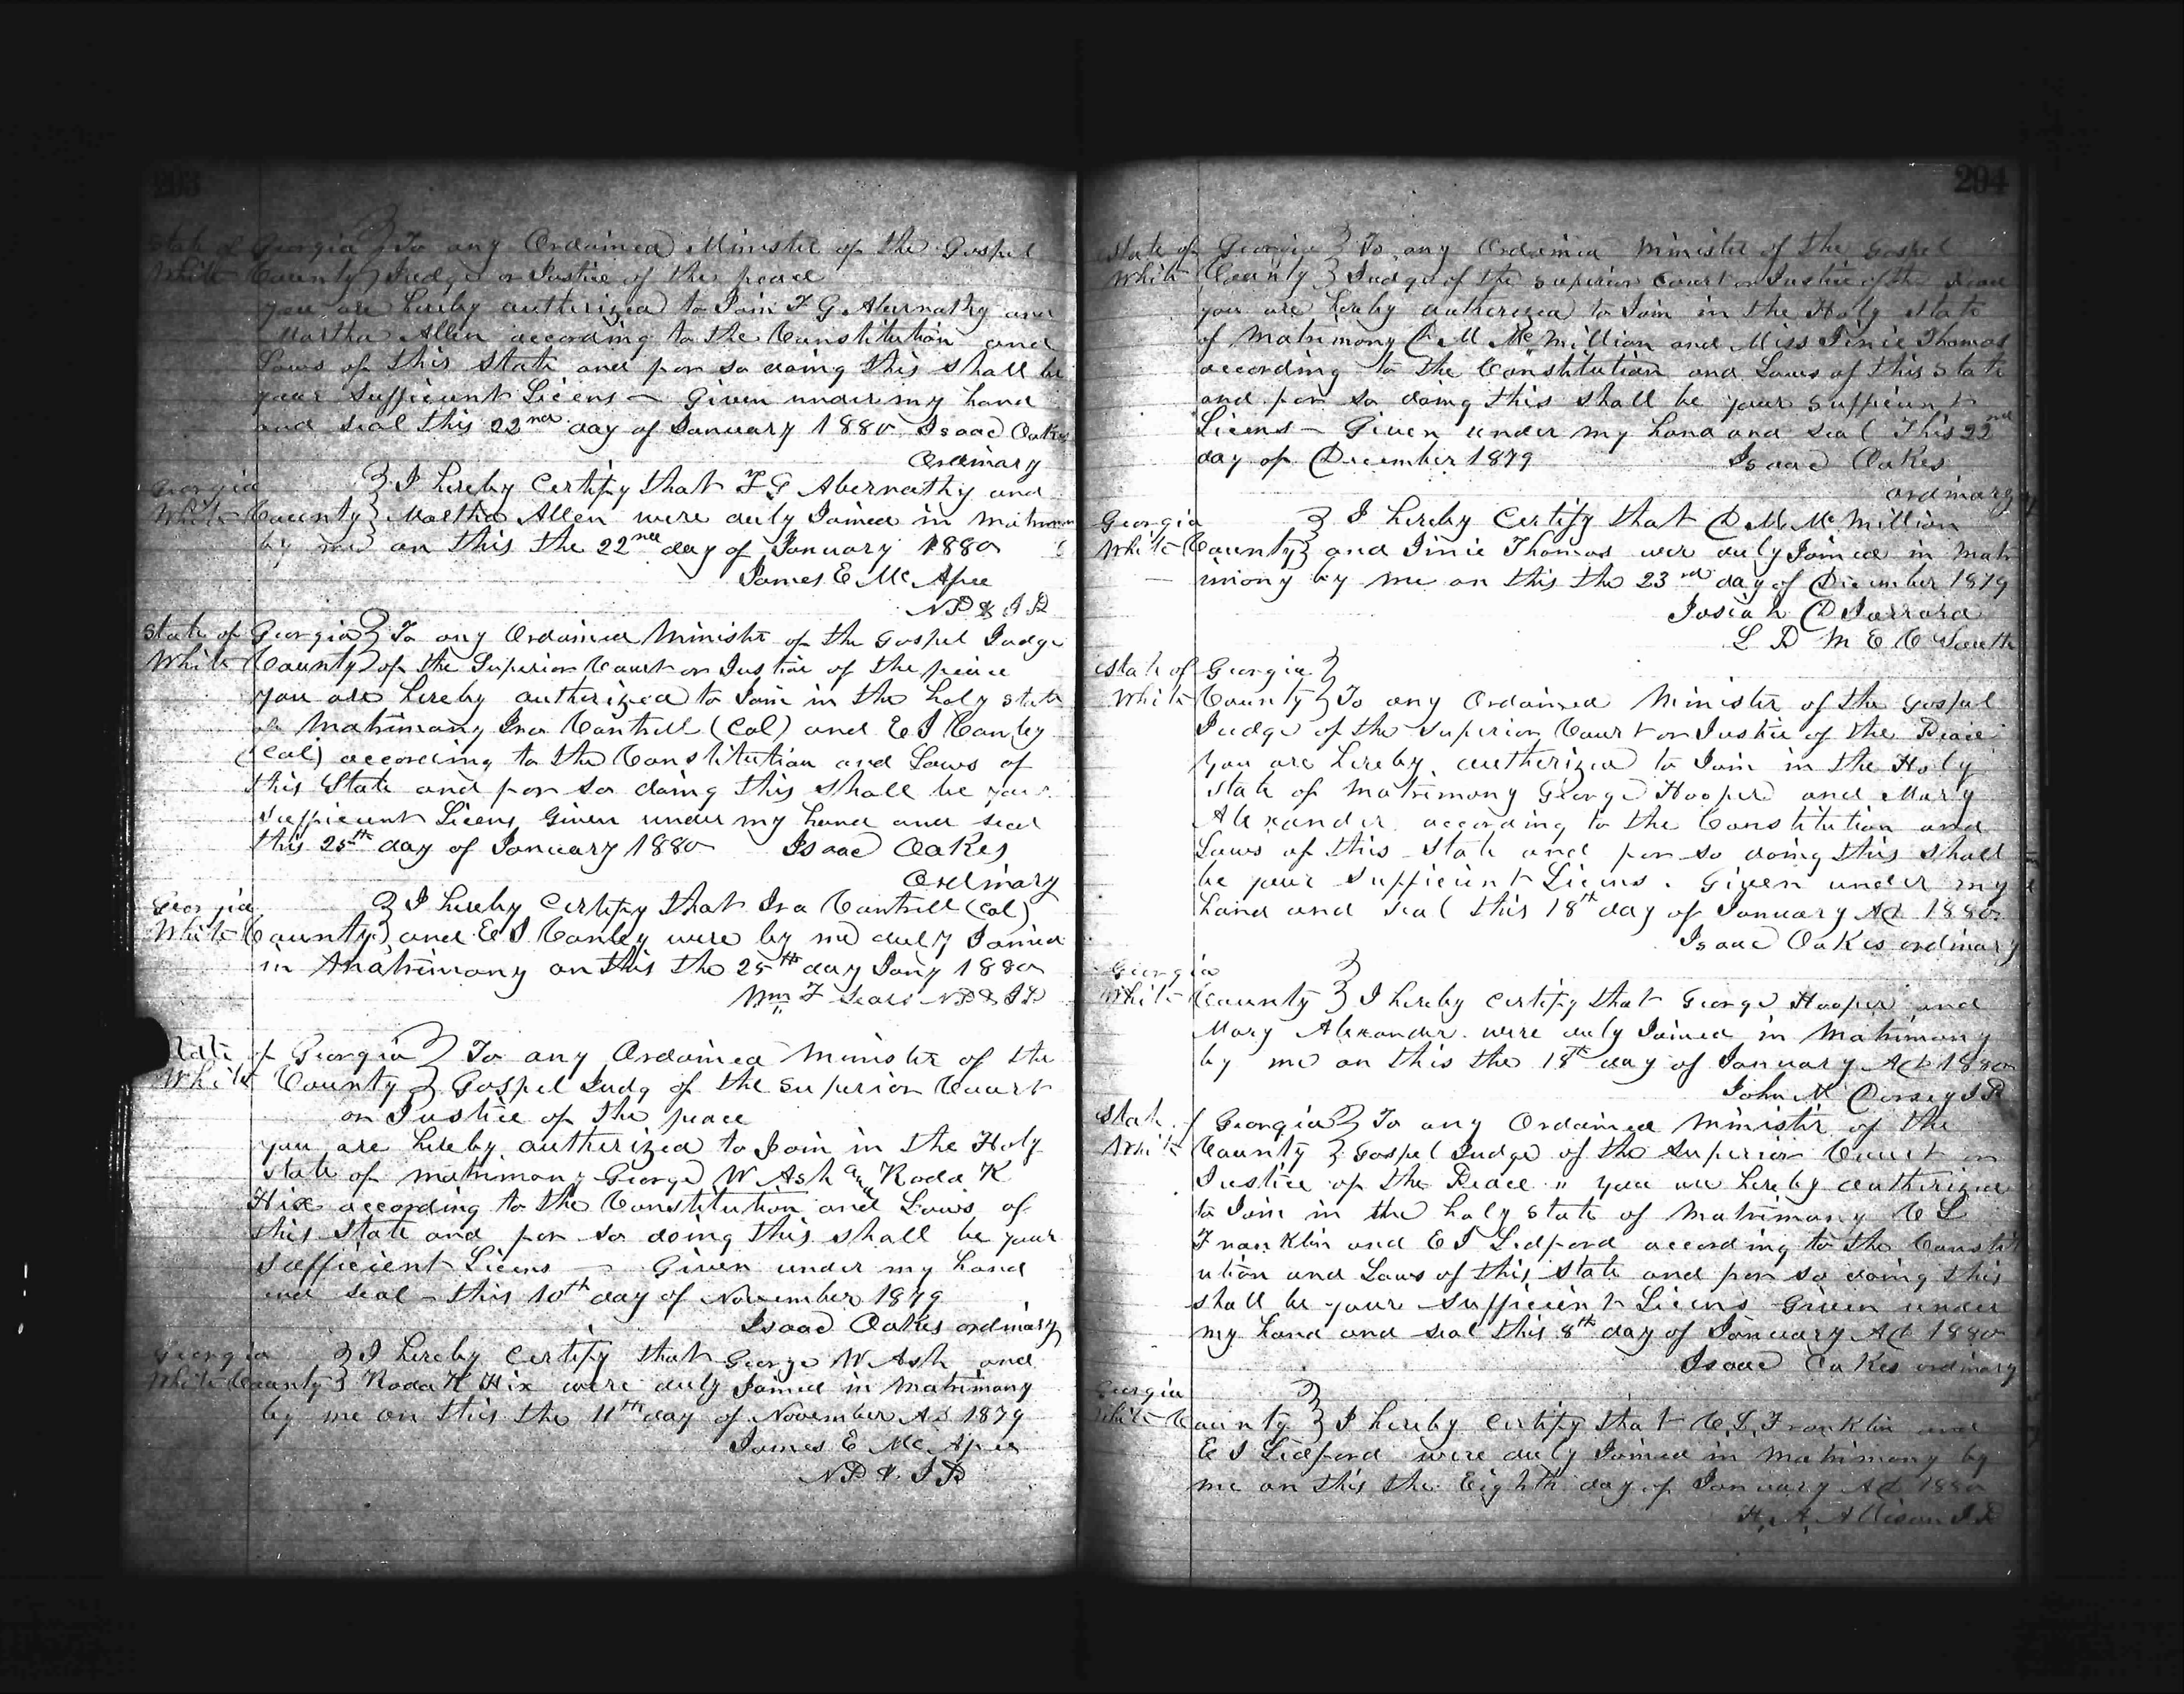 203
State of Georgia } To any Ordained Minister of the Gospel
White County } Judge or Justice of the peace
you are hereby autherized to Join F G Abernathy and
Martha Allen according to the Constitution and
Laws of this State and for so doing this shall be
your Sufficient Licens – Given under my hand
and seal this 22nd day of January 1880 Isaac Oakes
Ordinary
Georgia } I hereby Certify that F G Abernathy and
White County } Martha Allen were duly Joined in matrimony
by me on this the 22nd day of January 1880
James E Mc Afee
N P & J P
State of Georgia } To any Ordained Ministr of the Gospel Judge
White County } of the Superior Court or Justice of the peace
you are hereby autherized to Join in the holy state
of Matrimony Ira Cantrell (Col) and E J Canley
(Col) according to the Constitution and Laws of
this State and for so doing this shall be your
sufficient Licens Given under my hand and seal
this 25th day of January 1880 Isaac Oakes
Ordinary
Georgia } I hereby Certify that Ira Cantrell (Col)
White County } and E J Canley were by me duly Joined
in Matrimony on this the 25th day Jany 1880
Wm F Sears N P & J P
State of Georgia } To any Ordained Ministr of the
White County } Gospel Judg of the Superior Court
or Justice of the peace
you are hereby autherized to Join in the Holy
state of matrimony George W Ash and Roda K
Hix according to the Constitution and Laws of
this State and for so doing this shall be your
Sufficient Licens – Given under my hand
and seal – this 10th day of November 1879
Isaac Oakes ordinary
Georgia } I hereby Certify that George W Ash and
White County } Roda K Hix were duly Joined in Matrimony
by me on this the 11th day of November AD 1879
James E Mc Afee
N P & J P
204
State of Georgia } To any Ordained Minister of the Gospel
White County } Judge of the Superior Court or Justice of the peace
you are hereby autherized to Join in the Holy State
of Matrimony D M McMillion and Miss Jinie Thomas
according to the Constitution and Laws of this State
and for so doing this shall be your Sufficient
Licens – Given under my hand and seal This 22nd
day of December 1879 Isaac Oakes
ordinary
Georgia } I hereby Certify that D M McMillion
White County } and Jinie Thomas wer duly Joined in Mat
rimony by me on this the 23rd day of December 1879
Josiah D Jarrard
L D M E C South
State of Georgia }
White County } To any Ordained Minister of the Gospel
Judge of the Superior Court or Justice of the Peace
you are hereby autherized to Join in the Holy
State of Matrimony George Hooper and Mary
Alexander according to the Constitution and
Laws of this State and for so doing this shall
be your Sufficient Licens. Given under my
hand and seal this 18th day of January AD 1880
Isaac Oakes ordinary
Georgia }
White County } I hereby Certify that George Hooper and
Mary Alexander were duly Joined in Matrimony
by me on this the 18th day of January AD 1880
John M Dorsey J P
State of Georgia } To any Ordained Ministr of the
White County } Gospel Judge of the Superior Court or
Justice of the Peace " you are hereby autherized
to Join in the holy State of Matrimony C L
Franklin and E J Ledford according to the Constit
ution and Laws of this State and for so doing this
shall be your Sufficient Licens Given under
my hand and seal this 8th day of January AD 1880
Isaac Oakes ordinary
Georgia }
White County } I hereby Certify that C. L. Franklin and
E J Ledford were duly Joined in Matrimony by
me on this the Eighth day of January AD 1880
H. A. Allison J P